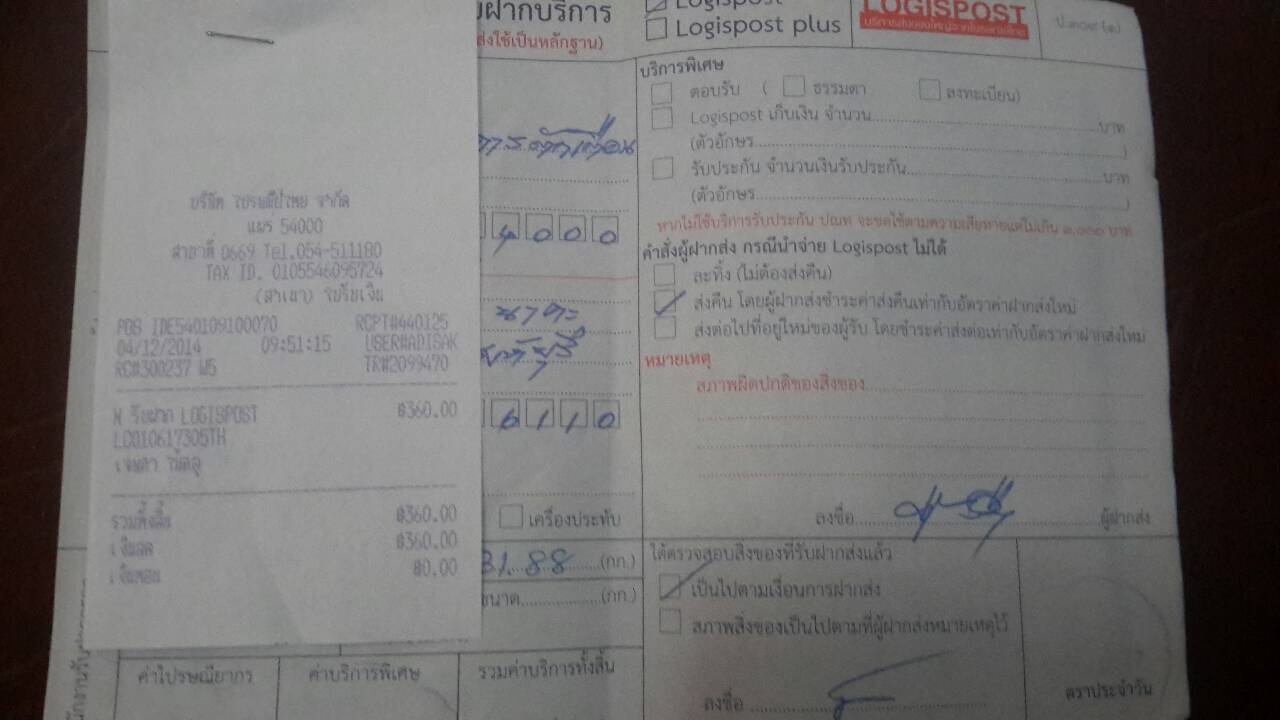 บริษัท ไปรษณีย์ไทย จำกัด
แพร่ 54000
สาขาที่ 0669 Tel.054-511180
TAX ID. 0105546095724
(สาเนา) ใบรับเงิน
POS IDE540109100070 RCPT#440125
04/12/2014 09:51:15 USER#ADISAK
RC#300237 W5 TR#2099470
N รับฝาก LOGISPOST ฿360.00
LC010617305TH
รวมทั้งสิ้น ฿360.00
เงินสด ฿360.00
เงินทอน ฿0.00
ฝากบริการ
ใช้เป็นหลักฐาน)
4000
6110
เครื่องประทับ
31.88 (กก.)
ขนาด (กก.)
ค่าไปรษณียากร
ค่าบริการพิเศษ
รวมค่าบริการทั้งสิ้น
Logispost
Logispost plus
LOGISPOST
ป.๓๐๙ (๑)
บริการพิเศษ
ตอบรับ ( ธรรมดา ลงทะเบียน)
Logispost เก็บเงิน จำนวน บาท
(ตัวอักษร )
รับประกัน จำนวนเงินรับประกัน บาท
(ตัวอักษร )
หากไม่ใช้บริการรับประกัน ปณท จะชดใช้ตามความเสียหายแต่ไม่เกิน ๑,๐๐๐ บาท
คำสั่งผู้ฝากส่ง กรณีนำจ่าย Logispost ไม่ได้
ละทิ้ง (ไม่ต้องส่งคืน)
ส่งคืน โดยผู้ฝากส่งชำระค่าส่งคืนเท่ากับอัตราค่าฝากส่งใหม่
ส่งต่อไปที่อยู่ใหม่ของผู้รับ โดยชำระค่าส่งต่อเท่ากับอัตราค่าฝากส่งใหม่
หมายเหตุ
สภาพผิดปกติของสิ่งของ
ลงชื่อ ผู้ฝากส่ง
ได้ตรวจสอบสิ่งของที่รับฝากส่งแล้ว
เป็นไปตามเงื่อนการฝากส่ง
สภาพสิ่งของเป็นไปตามที่ผู้ฝากส่งหมายเหตุไว้
ลงชื่อ
ตราประจำวัน